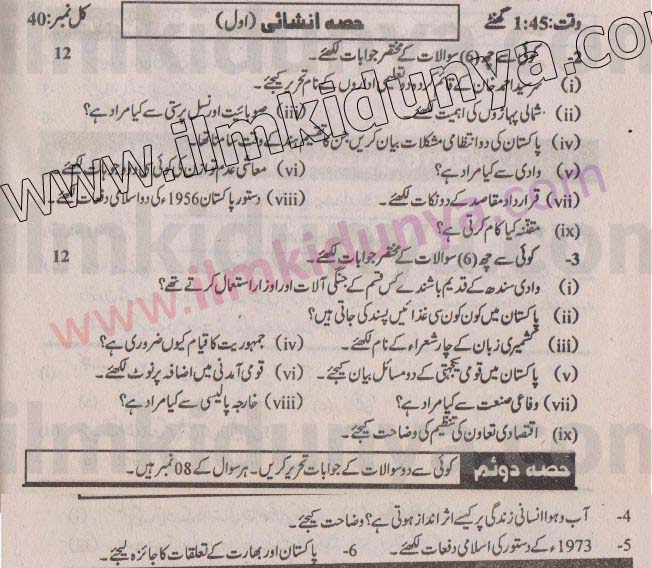 وقت:1:45 گھنٹے حصہ انشائی (اول) کل نمبر:40
2- کوئی سے چھ (6) سوالات کے مختصر جوابات لکھئے۔ 12
(i) سرسید احمد خان کے قائم کردہ دو تعلیمی اداروں کے نام تحریر کیجئے۔
(ii) شمالی پہاڑوں کی اہمیت لکھئے۔ (iii) صوبائیت اور نسل پرستی سے کیا مراد ہے؟
(iv) پاکستان کی دو انتظامی مشکلات بیان کریں جن کا تقسیم ہند کے وقت سامنا تھا۔
(v) وادی سے کیا مراد ہے؟ (vi) معاشی عدم توازن کی کوئی سی دو وجوہات لکھئے۔
(vii) قرارداد مقاصد کے دو نکات لکھئے۔ (viii) دستور پاکستان 1956ء کی دو اسلامی دفعات لکھئے۔
(ix) مقننہ کیا کام کرتی ہے؟
3- کوئی سے چھ (6) سوالات کے مختصر جوابات لکھئے۔ 12
(i) وادی سندھ کے قدیم باشندے کس قسم کے جنگی آلات اور اوزار استعمال کرتے تھے؟
(ii) پاکستان میں کون کون سی غذائیں پسند کی جاتی ہیں؟
(iii) کشمیری زبان کے چار شعراء کے نام لکھئے۔ (iv) جمہوریت کا قیام کیوں ضروری ہے؟
(v) پاکستان میں قومی یکجہتی کے دو مسائل بیان کیجئے۔ (vi) قومی آمدنی میں اضافہ پر نوٹ لکھئے۔
(vii) دفاعی صنعت سے کیا مراد ہے؟ (viii) خارجہ پالیسی سے کیا مراد ہے؟
(ix) اقتصادی تعاون کی تنظیم کی وضاحت کیجئے۔
حصہ دوئم کوئی سے دو سوالات کے جوابات تحریر کریں۔ ہر سوال کے 08 نمبر ہیں۔
4- آب و ہوا انسانی زندگی پر کیسے اثر انداز ہوتی ہے؟ وضاحت کیجئے۔
5- 1973ء کے دستور کی اسلامی دفعات لکھئے۔ 6- پاکستان اور بھارت کے تعلقات کا جائزہ لیجئے۔
www.ilmkidunya.com
www.ilmkidunya.com
ilmkidunya.com